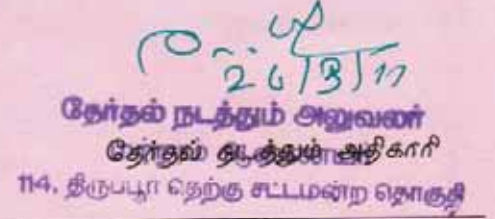 26/3/11
தேர்தல் நடத்தும் அலுவலர்
தேர்தல் நடத்தும் அதிகாரி
114, திருப்பூர் தெற்கு சட்டமன்ற தொகுதி